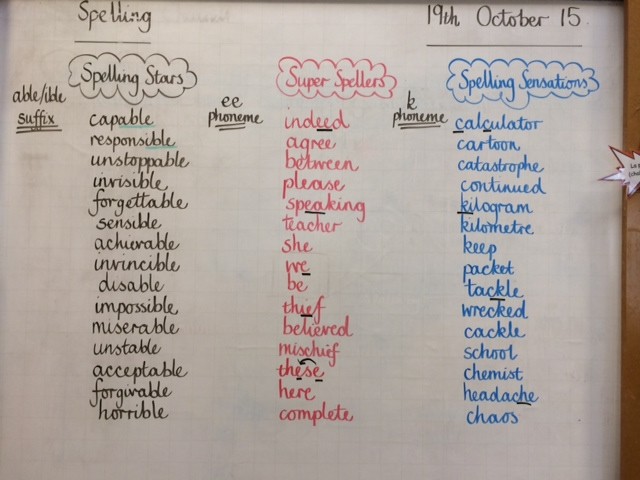 Spelling
19th October 15.
Spelling Stars
able/ible
suffix
capable
responsible
unstoppable
invisible
forgettable
sensible
achievable
invincible
disable
impossible
miserable
unstable
acceptable
forgivable
horrible
Super Spellers
ee
phoneme
indeed
agree
between
please
speaking
teacher
she
we
be
thief
believed
mischief
these
here
complete
Spelling Sensations
k
phoneme
calculator
cartoon
catastrophe
continued
kilogram
kilometre
keep
packet
tackle
wrecked
cackle
school
chemist
headache
chaos